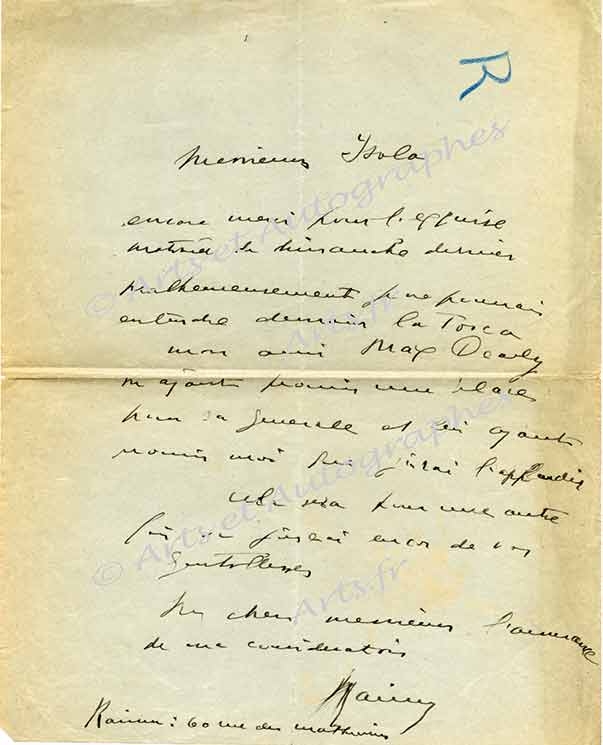 R
Messieurs Isola
encore merci pour l'exquise
matinée de dimanche dernier
malheureusement je ne pourrais
entendre demain la Tosca
mon ami Max Dearly
m'ayant promis une place
pour sa generale et lui ayant
promis moi que j'irai l'applaudir
cela sera pour une autre
fois je userai encor de vos
gentillesses
chers messieurs l'assurance
de ma consideration
60 rue des mathurins
© Arts et Autographes
Arts.fr
© Arts et Autographes
Arts.fr